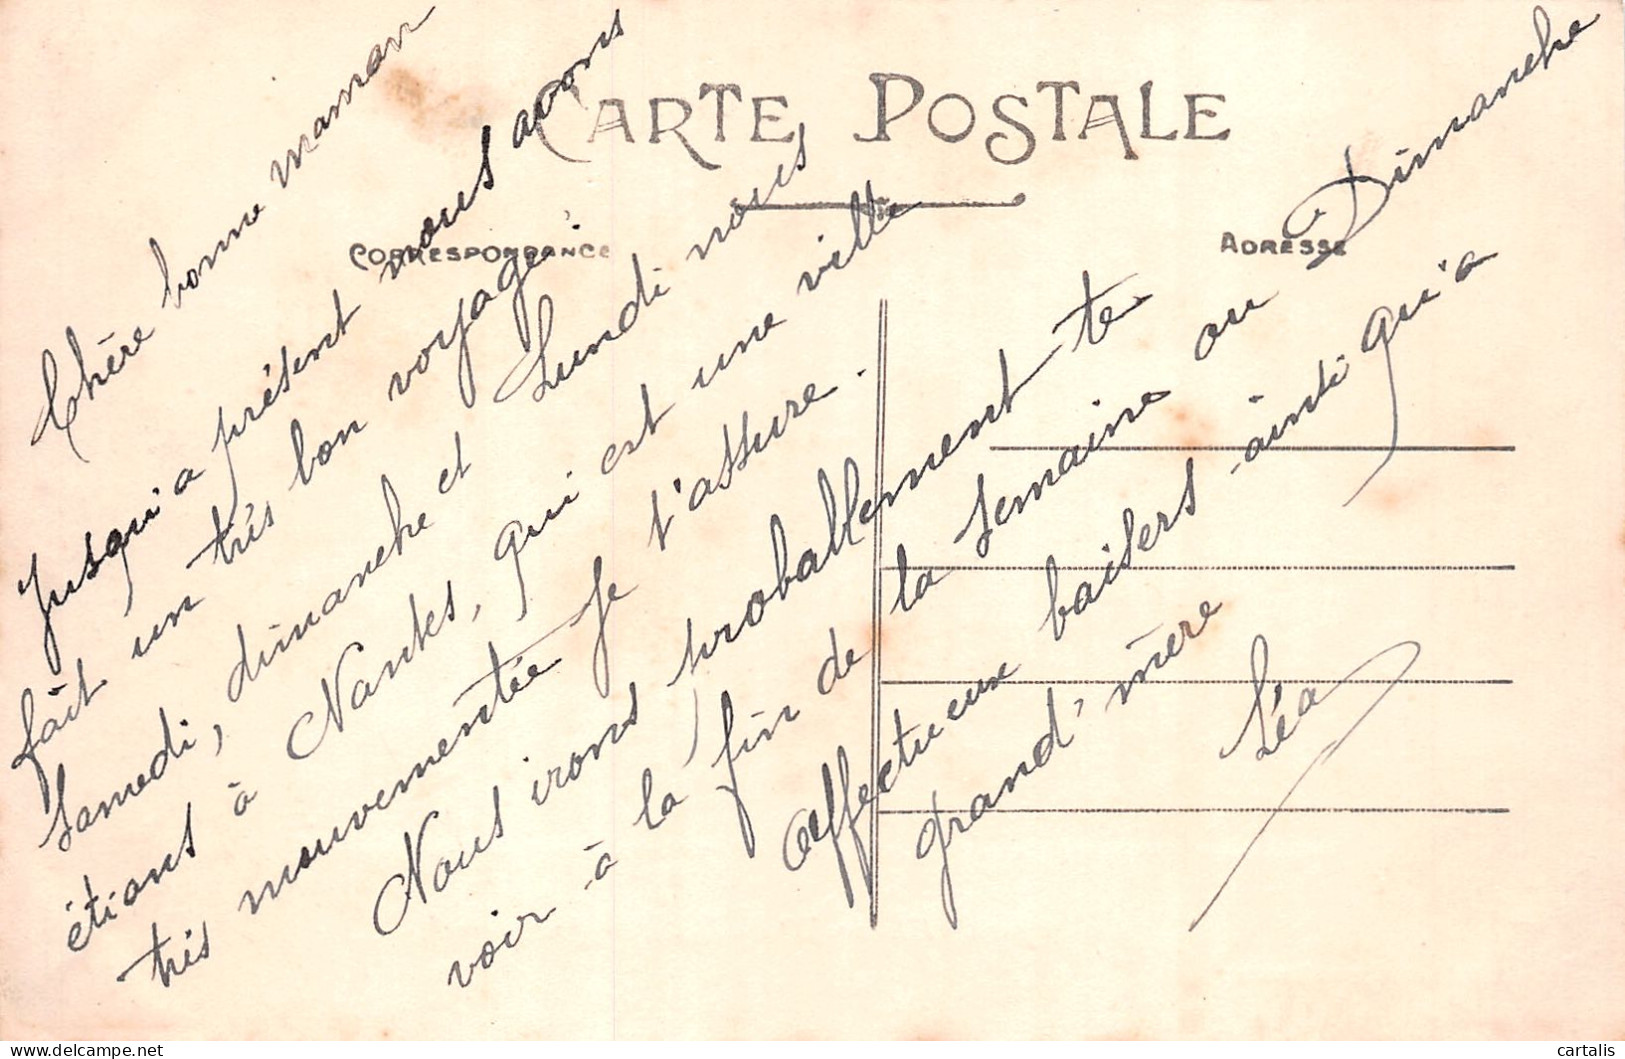 CARTE POSTALE
CORRESPONDANCE
ADRESSE
Chère bonne maman
Jusqu'a présent nous avons
fait un très bon voyage.
Samedi, dimanche et Lundi nous
étions à Nantes, qui est une ville
très mouvementée je t'assure.
Nous irons probablement te
voir à la fin de la semaine ou Dimanche
Affectueux baisers ainsi qu'a
grand'mère
Léa
cartalis